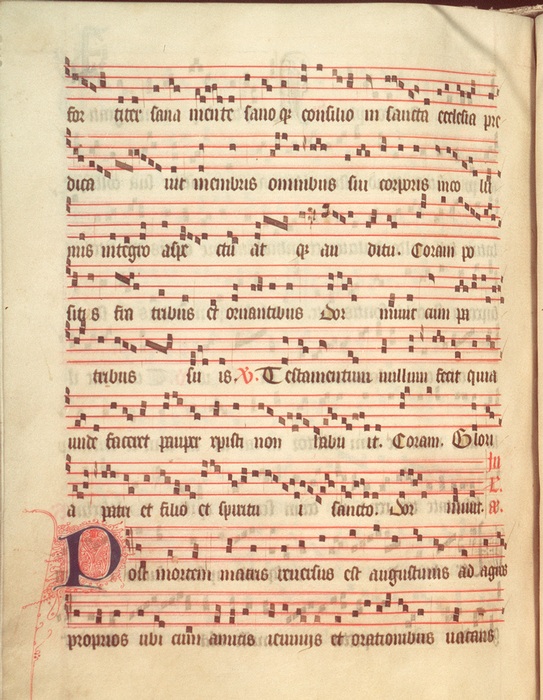 for titer sana mente sano qꝫ consilio in sancta ecclesia pre
dica uit membris omnibus sui corporis inco lu
mis integro aspe ctu at qꝫ au ditu. Coram po
siti s fra tribus et orantibus Dor miuit cum pa
tribus su is. V. Testamentum nullum fecit quia
unde faceret pauper xpisti non habu it. Coram. Glori
a patri et filio et spiritu i sancto. Dor miuit.
Post mortem matris reuersus est augustinus ad agros
proprios ubi cum amicis ieiuniis et orationibus uacans